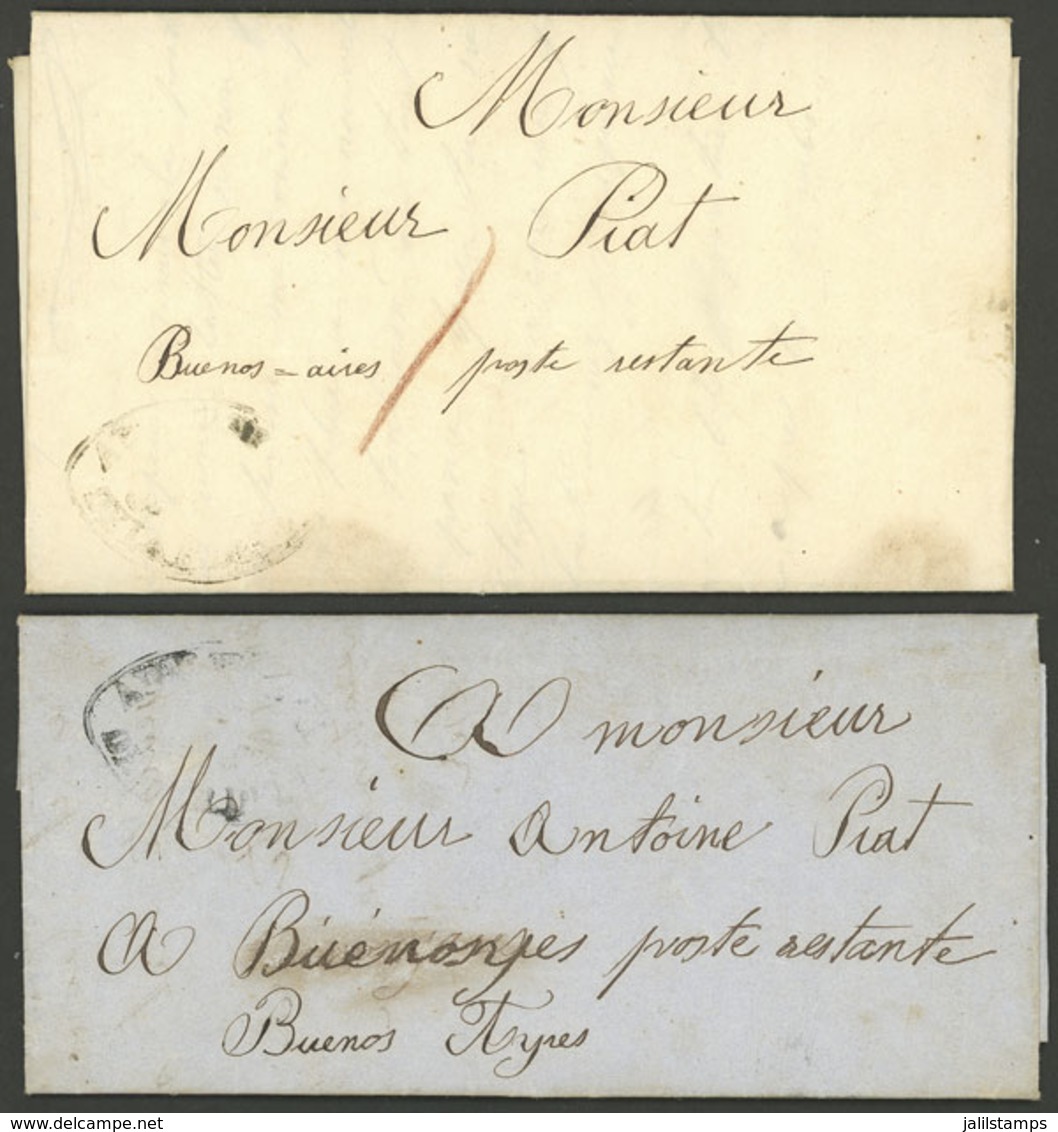 Monsieur
Monsieur Piat
Buenos=aires poste restante
A monsieur
Monsieur Antoine Piat
A Buénonyes poste restante
Buenos Ayres
delcampe.net
jalilstamps